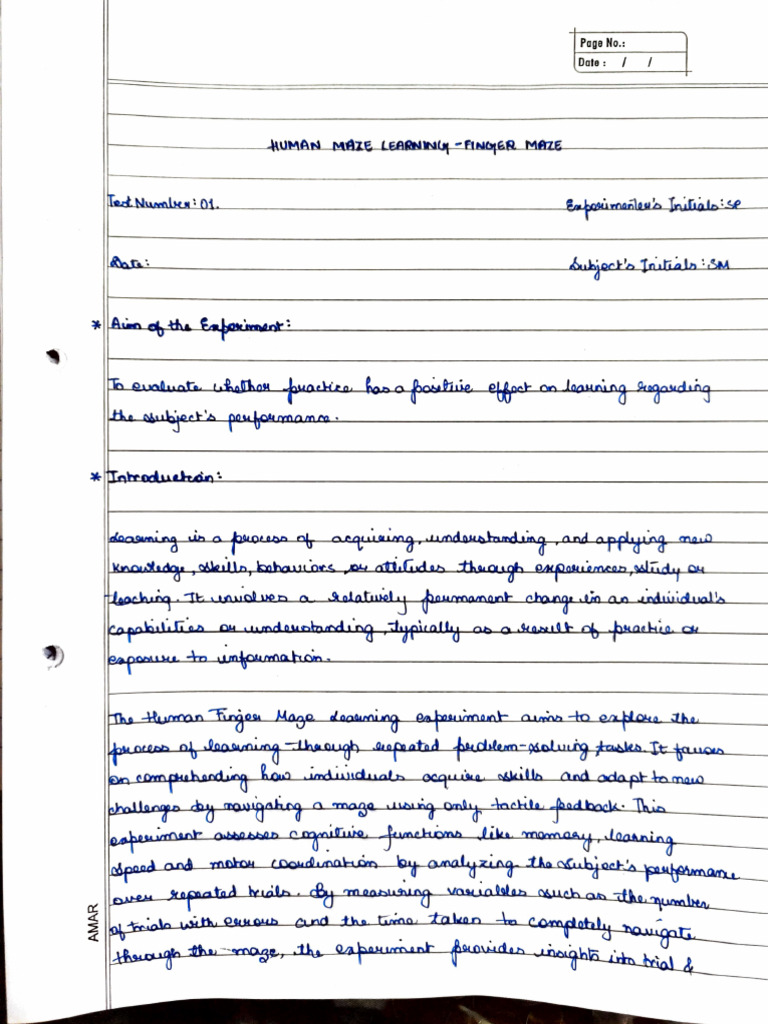 Page No.:
Date : / /
HUMAN MAZE LEARNING - FINGER MAZE
Test Number: 01.
Experimenter's Initials: SP
Date:
Subject's Initials: SM
* Aim of the Experiment:
To evaluate whether practice has a positive effect on learning regarding
the subject's performance.
* Introduction:
Learning is a process of acquiring, understanding, and applying new
knowledge, skills, behaviors or attitudes through experiences, study or
teaching. It involves a relatively permanent change in an individual's
capabilities or understanding, typically as a result of practice or
exposure to information.
The Human Finger Maze Learning experiment aims to explore the
process of learning through repeated problem-solving tasks. It focuses
on comprehending how individuals acquire skills and adapt to new
challenges by navigating a maze using only tactile feedback. This
experiment assesses cognitive functions like memory, learning
speed and motor coordination by analyzing the subject's performance
over repeated trials. By measuring variables such as the number
of trials with errors and the time taken to completely navigate
through the maze, the experiment provides insights into trial &
AMAR